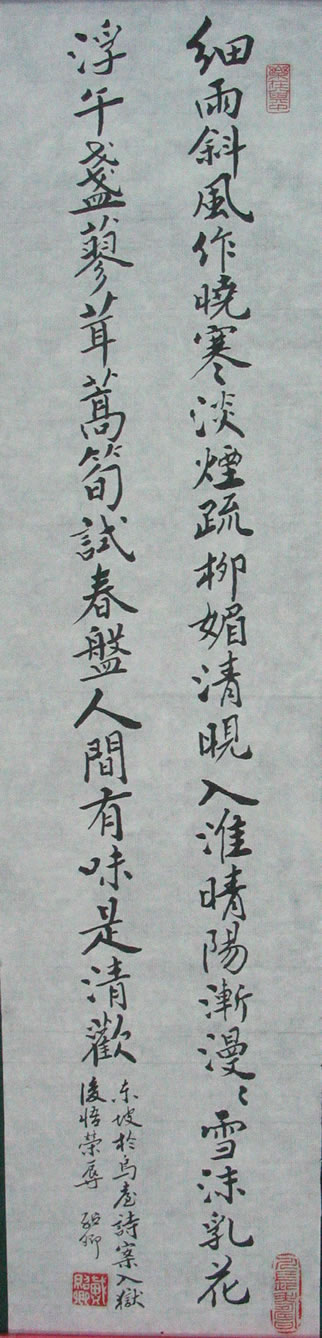 細雨斜風作曉寒淡煙疏柳媚清晛入淮晴陽漸漫〻雪沫乳花
浮午盞蓼茸蒿筍試春盤人間有味是清歡
东坡於烏臺詩案入獄
後悟榮辱